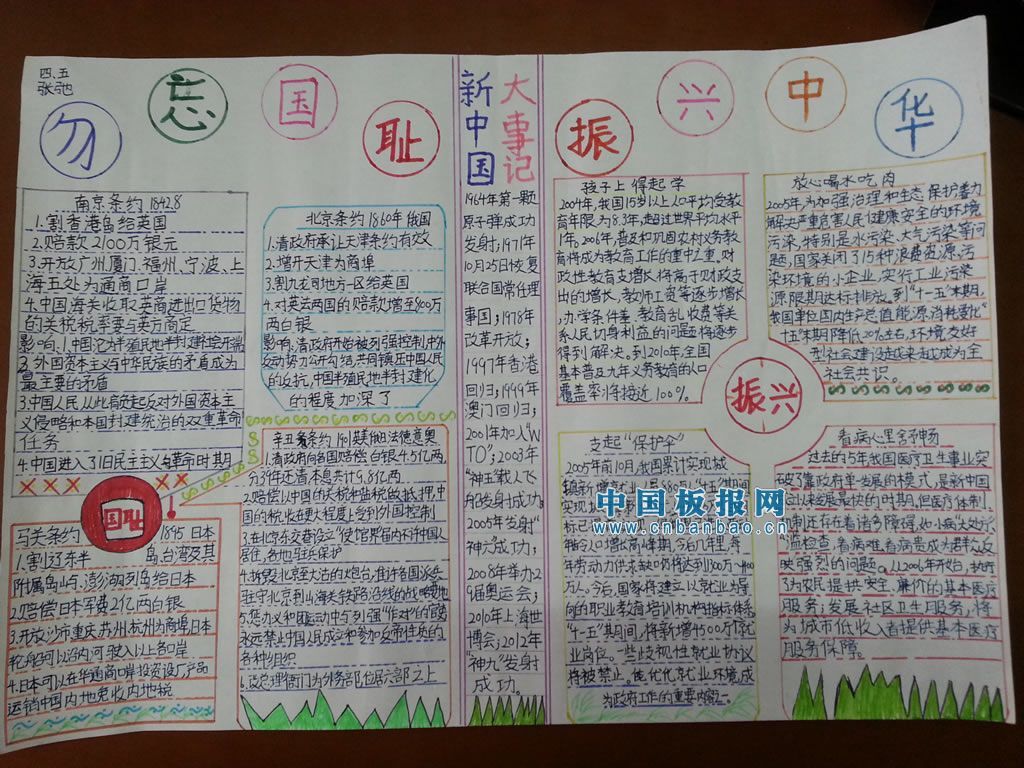 四、五
张弛
勿忘国耻
新中国
大事记
振兴中华
南京条约 1842.8
1.割香港岛给英国
2.赔款2100万银元
3.开放广州厦门、福州、宁波、上
海五处为通商口岸
4.中国海关收取英商进出口货物
的关税税率要与英方商定
影响:1.中国沦为半殖民地半封建社会开端
2.外国资本主义与中华民族的矛盾成为
最主要的矛盾
3.中国人民从此肩负起反对外国资本主
义侵略和本国封建统治的双重革命
任务
4.中国进入了旧民主主义革命时期
国耻
马关条约 1895 日本
1.割辽东半岛台湾及其
附属岛屿、澎湖列岛给日本
2.赔偿日本军费2亿两白银
3.开放沙市重庆、苏州、杭州为商埠,日本
轮船可以沿内河驶入以上各口岸
4.日本可以在华通商口岸投资设厂产品
运销中国内地免收内地税
北京条约1860年俄国
1.清政府承认天津条约有效
2.增开天津为商埠
3.割九龙司地方一区给英国
4.对英法两国的赔款增至800万
两白银
影响.清政府开始被列强控制,中外
反动势力公开勾结,共同镇压中国人民
的反抗,中国半殖民地半封建化
的程度加深了
辛丑条约 1901英美俄日法德意奥
1.清政府向各国赔偿白银4.5亿两,
分39年还清本息共计9.8亿两
2.赔偿以中国的关税和盐税做抵押,中
国的税收在更大程度上受到外国控制
3.在北京东交巷设立"使馆界"界内不许中国人
居住,各地驻兵保护
4.拆毁北京至大沽的炮台,准许各国派兵
驻守北京到山海关铁路沿线的战略要地
永远禁止中国人民成立和参加反帝性质的
各种组织
6.改总理衙门为外务部,位居六部之上
1964年第一颗
原子弹成功
发射;1971年
10月25日恢复
联合国常任理
事国;1978年
改革开放;
1997年香港
回归;1999年
澳门回归;
2001年加入"W
TO";2003年
"神五"载人飞
船发射成功;
2005年发射"
神六"成功;
2008年举办2
9届奥运会;
2010年上海世
博会;2012年
"神九"发射
成功。
孩子上得起学
2004年,我国15岁以上人口平均受教
育年限为8.3年,超过世界平均水平
1年。2006年,普及和巩固农村义务教
育将成为教育工作的重中之重.财
政性教育支增长将高于财政支
出的增长、教师工资等逐步增长
,办学条件差、教育乱收费等关
系人民切身利益的问题将逐步
得到解决。到2010年,全国
基本普及九年义务教育的人口
覆盖率将接近100%。
放心喝水吃肉
2005年,为加强治理和生态保护着力
解决严重危害人民健康安全的环境
污染,特别是水污染、大气污染等问
题,国家关闭了15种浪费资源、污
染环境的小企业,实行工业污染
源限期达标排放。到"十一五"末期,
我国单位国内生产总值能源消耗比"
十五"末期降低20%左右,环境友好
型社会建设越来越成为全
社会共识。
振兴
支起"保护伞"
2005年前10月,我国累计实现城
万人。今后,国家将建立以就业为导
向的职业教育培训机构指标体系
"十一五"期间,将新增4500万个就
业岗位。一些歧视性就业协议
将被禁止。优化就业环境成
为政府工作的重要内容之一。
看病心里舒畅
过去的5年我国医疗卫生事业突
破了靠政府单一发展的模式,是新中国
成立以来发展最快的时期.但医疗体制、
机制还存在着诸多障碍,如小病大处方、
滥检查,看病难看病贵成为群众反
映强烈的问题。从2006年开始,政府
将为农民提供安全、廉价的基本医疗
服务;发展社区卫生服务,将
为城市低收入者提供基本医疗
服务保障。
中国板报网
www.cnbanbao.cn